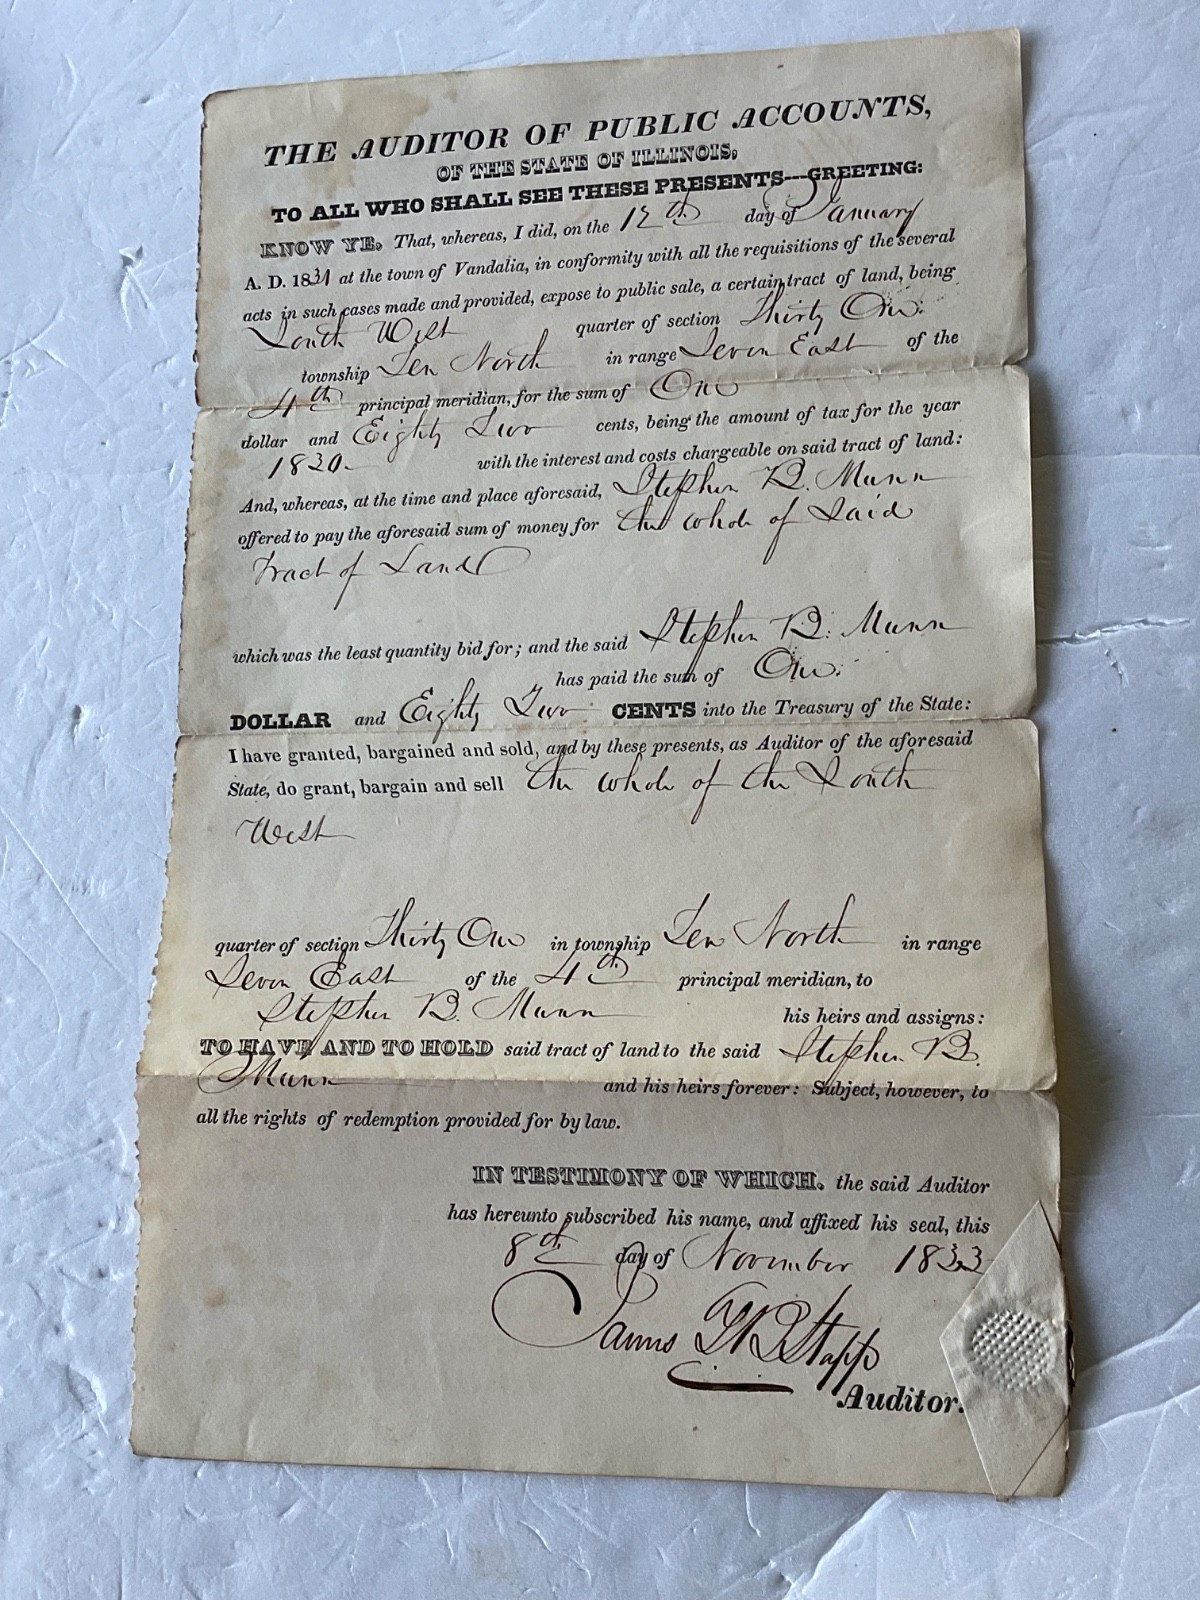 THE AUDITOR OF PUBLIC ACCOUNTS,
OF THE STATE OF ILLINOIS,
TO ALL WHO SHALL SEE THESE PRESENTS---GREETING:
KNOW YE, That, whereas, I did, on the 12th day of January
A. D. 1831 at the town of Vandalia, in conformity with all the requisitions of the several
acts in such cases made and provided, expose to public sale, a certain tract of land, being
South West quarter of section Thirty One
township Ten North in range Seven East of the
4th principal meridian, for the sum of One
dollar and Eighty Two cents, being the amount of tax for the year
1830. with the interest and costs chargeable on said tract of land:
And, whereas, at the time and place aforesaid, Stephen B. Munn
offered to pay the aforesaid sum of money for the whole of Said
Tract of Land
which was the least quantity bid for; and the said Stephen B. Munn
has paid the sum of One
DOLLAR and Eighty Two CENTS into the Treasury of the State:
I have granted, bargained and sold, and by these presents, as Auditor of the aforesaid
State, do grant, bargain and sell the whole of the South
West
quarter of section Thirty One in township Ten North in range
Seven East of the 4th principal meridian, to
Stephen B. Munn his heirs and assigns:
TO HAVE AND TO HOLD said tract of land to the said Stephen B.
Munn and his heirs forever: Subject, however, to
all the rights of redemption provided for by law.
IN TESTIMONY OF WHICH, the said Auditor
has hereunto subscribed his name, and affixed his seal, this
8th day of November 1833
James T B Stapp
Auditor.